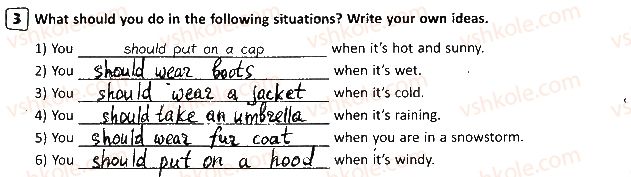 3 What should you do in the following situations? Write your own ideas.
1) You should put on a cap when it's hot and sunny.
2) You should wear boots when it's wet.
3) You should wear a jacket when it's cold.
4) You should take an umbrella when it's raining.
5) You should wear fur coat when you are in a snowstorm.
6) You should put on a hood when it's windy.